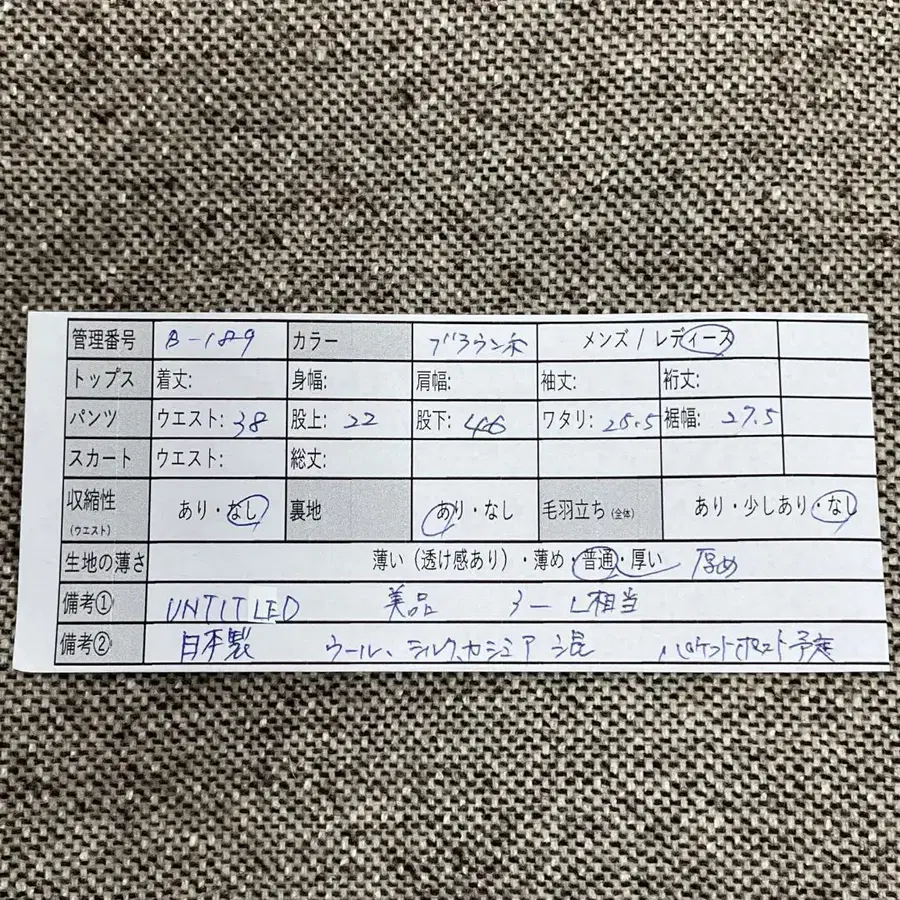 管理番号 B-189 カラー ブラウン系 メンズ / レディース
トップス 着丈: 身幅: 肩幅: 袖丈: 裄丈:
パンツ ウエスト: 38 股上: 22 股下: 46 ワタリ: 25.5 裾幅: 27.5
スカート ウエスト: 総丈:
収縮性 あり・なし 裏地 あり・なし 毛羽立ち (全体) あり・少しあり・なし
(ウエスト)
生地の薄さ 薄い（透け感あり）・薄め・普通・厚い 厚め
備考① UNTITLED 美品 3 - L相当
備考② 日本製 ウール、シルク、カシミア混 パケットポスト予定